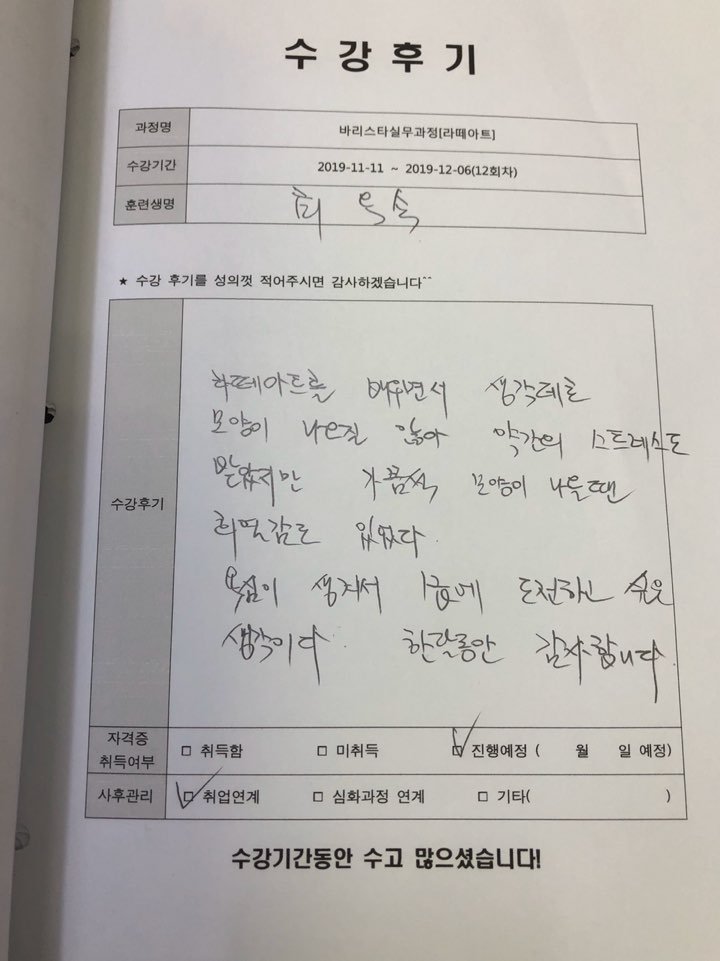 수강후기
과정명 바리스타실무과정[라떼아트]
수강기간 2019-11-11 ~ 2019-12-06(12회차)
훈련생명 최옥
★ 수강 후기를 성의껏 적어주시면 감사하겠습니다^^
수강후기
라떼아트를 배우면서 생각데로
모양이 나오질 않아 약간의 스트레스도
받았지만 가끔씩 모양이 나올땐
희열감도 있었다.
욕심이 생겨서 1급에 도전하고 싶은
생각이다. 한달동안 감사합니다.
자격증 취득여부 □ 취득함 □ 미취득 □ 진행예정 ( 월 일 예정)
사후관리 □ 취업연계 □ 심화과정 연계 □ 기타( )
수강기간동안 수고 많으셨습니다!